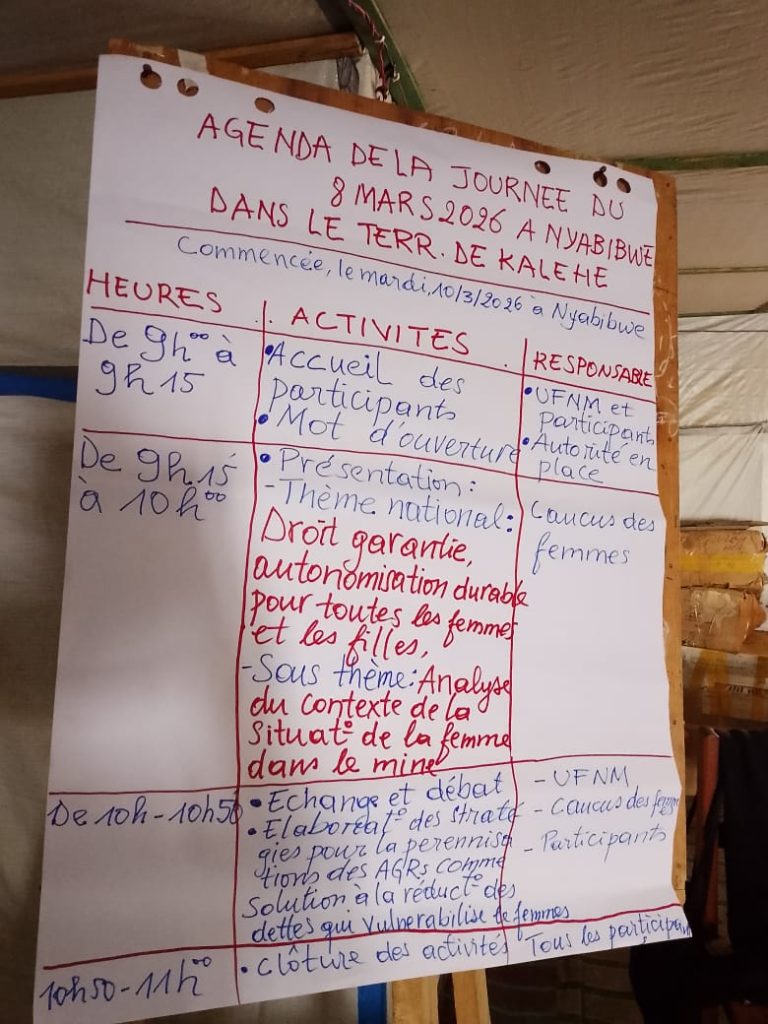 AGENDA DE LA JOURNEE DU
8 MARS 2026 A NYABIBWE
DANS LE TERR. DE KALEHE
Commencée, le mardi, 10/3/2026 à Nyabibwe
HEURES
ACTIVITES
RESPONSABLE
De 9h00 à
9h15
• Accueil des
participants
• Mot d'ouverture
• UFNM et
participants
• Autorité en
place
De 9h15
à 10h00
• Présentation:
- Thème national:
Droit garantie,
autonomisation durable
pour toutes les femmes
et les filles,
- Sous thème: Analyse
du contexte de la
Situat° de la femme
dans le mine
Caucus des
femmes
De 10h - 10h50
• Echange et débat
• Elaborat° des straté
gies pour la perennisa
tions des AGRs comme
Solution à la réduct° des
dettes qui vulnerabilise le femmes
- UFNM
- Caucus des femmes
- Participants
10h50 - 11h00
• Clôture des activités
Tous les participan